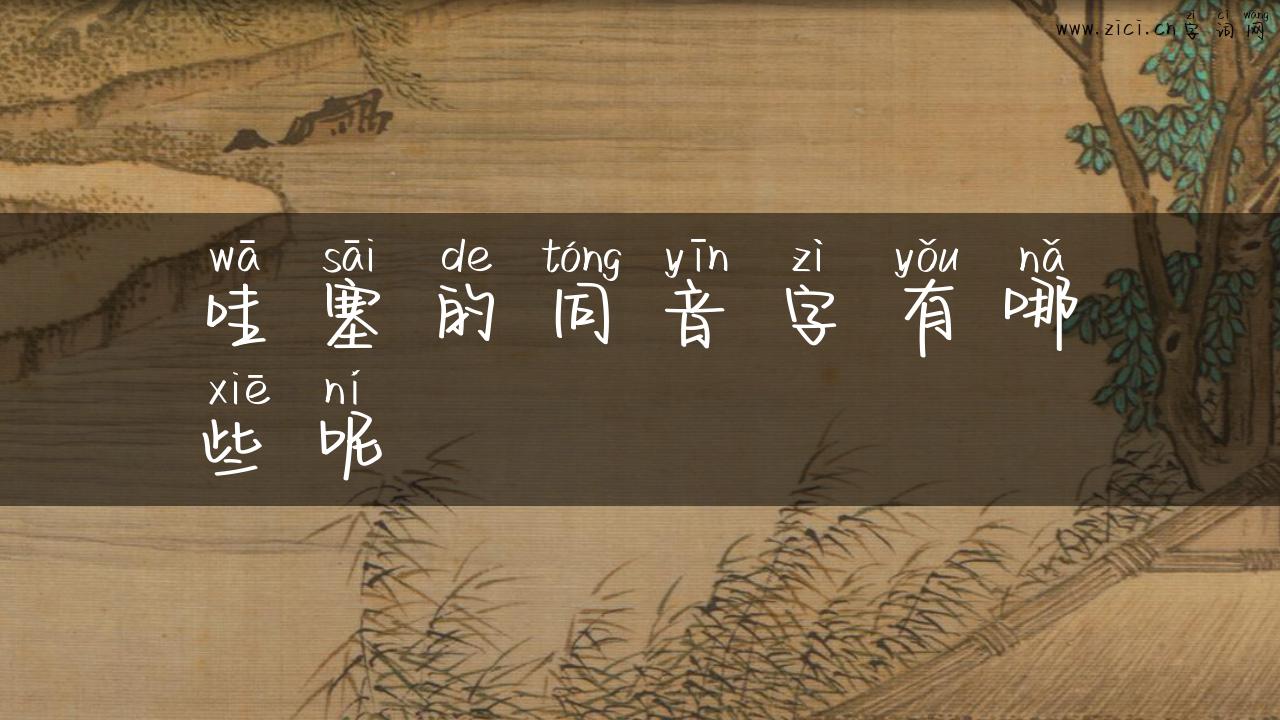 zì cí wǎng
www.zici.cn字词网
wā sāi de tóng yīn zì yǒu nǎ
哇塞的同音字有哪
xiē ní
些呢